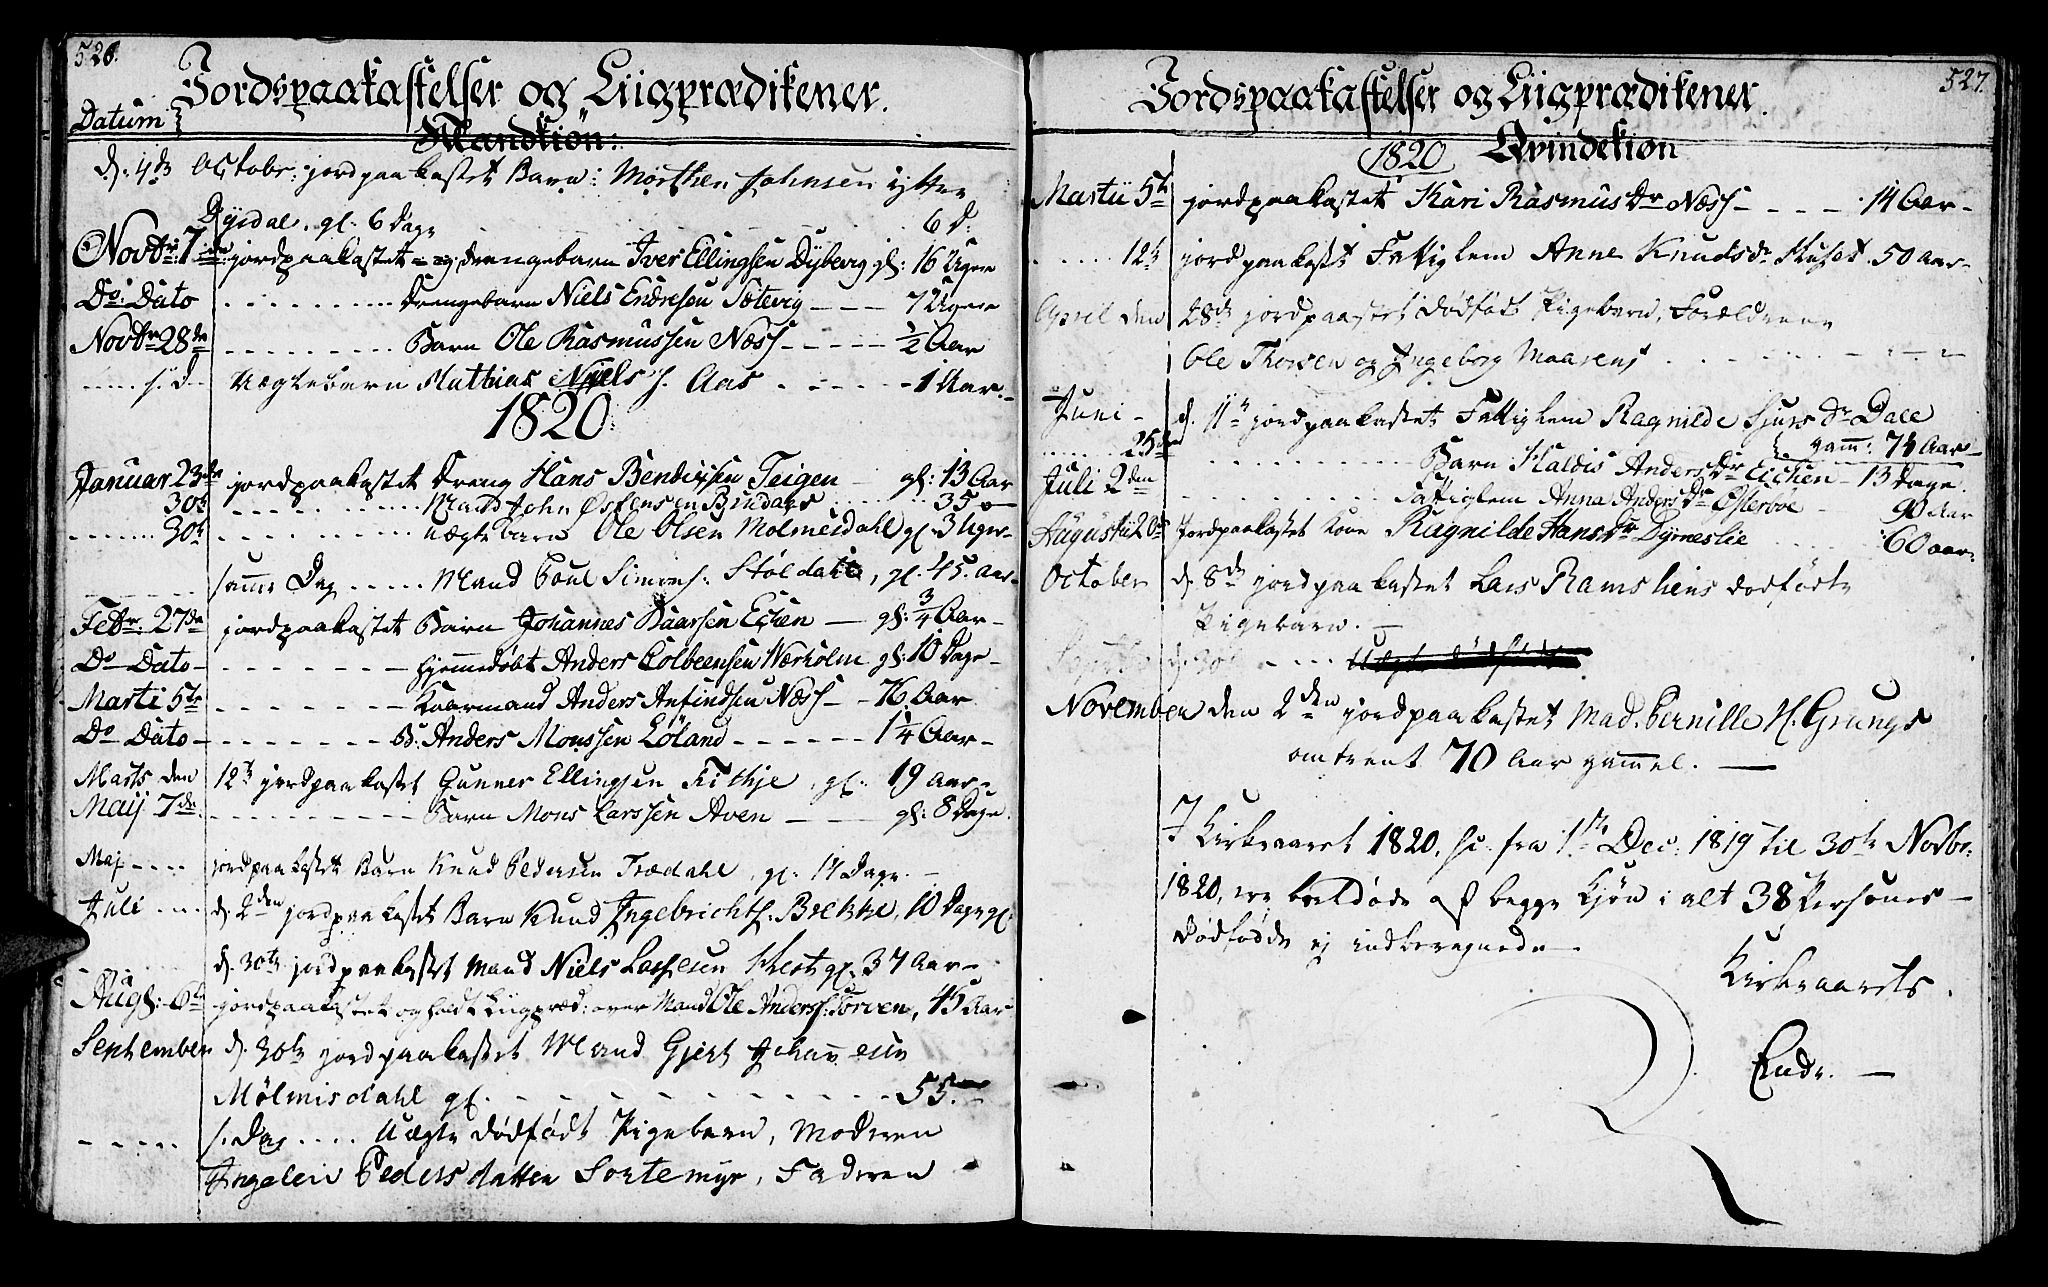 526.
Jordspaakastelser og Liigprædikener.
Datum
Mandkiøn:
d: 4de Octobr: jordpaakastet Barn: Morthen Johnsen ytter
Dysdal, gl. 6 Dage 6 D:
Novbr: 7de jordpaakastet drengebarn Iver Ellingsen Dybevig gl: 16 Uger
Do: Dato drengebarn Niels Endresen Tetevig 7 Uger
Novbr 28de Barn Ole Rasmussen Næss ½ Aar
s. D Uægtebarn Mathias Niels s. Aas 1 Aar.
1820
Januar 23de jordpaakastet Dreng Hans Bendixsen Teigen gl: 13 Aar
30te Mand John Østensen Bindaas 35
30te uægte barn Ole Olsen Molmeisdahl gl. 3 Uger
samme Dag Mand Poul Simens: Støldahl, gl. 45. Aar
Febr: 27de jordpaakastet Barn Johannes Baarsen Echen gl: ¾ Aar
Do Dato hjemmedøbt Anders Colbeensen Værholm gl: 10 Dage
Marti 5te Kaarmand Anders Anfindsen Næss 76 Aar
Do Dato B: Anders Monssen Løland 1¼ Aar
Marts den 12te jordpaakastet Gunner Ellingsen Fithje, gl. 19 Aar
Maij 7de Barn Mons Larssen Aven gl: 8 Dage.
Maj jordpaakastet Barn Knud Pedersen Trædahl, gl. 14 Dage.
Juli d. 2den jordpaakastet Barn Knud Ingebrichts. Brekke, 10 Dage gl:
d. 30te jordpaakastet Mand Niels Lassesen Hest gl. 37 Aar
Aug: 6te jordpaakastet og holdt Liigpræd: over Mand Ole Anderss: Torven, 45 Aar
September d. 30te jordpaakastet Mand Gjert Johannesen
Mølmisdahl gl. 55.
s. Dag Uægte dødfødt Pigebarn, Moderen
Ingeleiv Pedersdatter Sortemyr, Faderen
527.
Jordspaakastelser og Liigprædikener.
1820 Qvindekiøn
Martii 5te jordpaakastet Kari Rasmus Dr Næss 14 Aar
12te jordpaakastet Fattiglem Anne Knudsdr Huset 50 Aar
April den 28de jordpaastet dødfødt Pigebarn, Forældrene
Ole Thorsen og Ingeborg Maarens
Juni d. 11te jordpaakastet Fattiglem Ragnilde Sjurs Dr Dale
gam: 74 Aar
25de Barn Haldis Anders Dr Eichen 13 Dage.
Juli 2den Fattiglem Anna Anders Dr Osterbøe 90 Aar
Augustii 20de Jordpaakastet Kone Ragnilde Hans Dr Dyrneslie 60 Aar
October d. 8de jordpaakastet Lars Ramsliens dødfødte
Pigebarn.
d. 30te Uægte dødfødt
November den 2den jordpaakastet Mad. Pernille H. Grungs
omtrent 70 Aar gammel.
I Kirkeaaret 1820, sc. fra 1ste Dec: 1819 til 30te Novbr:
1820, ere bortdøde af begge Kjøn i alt 38 Personer
Dødfødde ej indberegnede
Kirkeaarets
Ende.